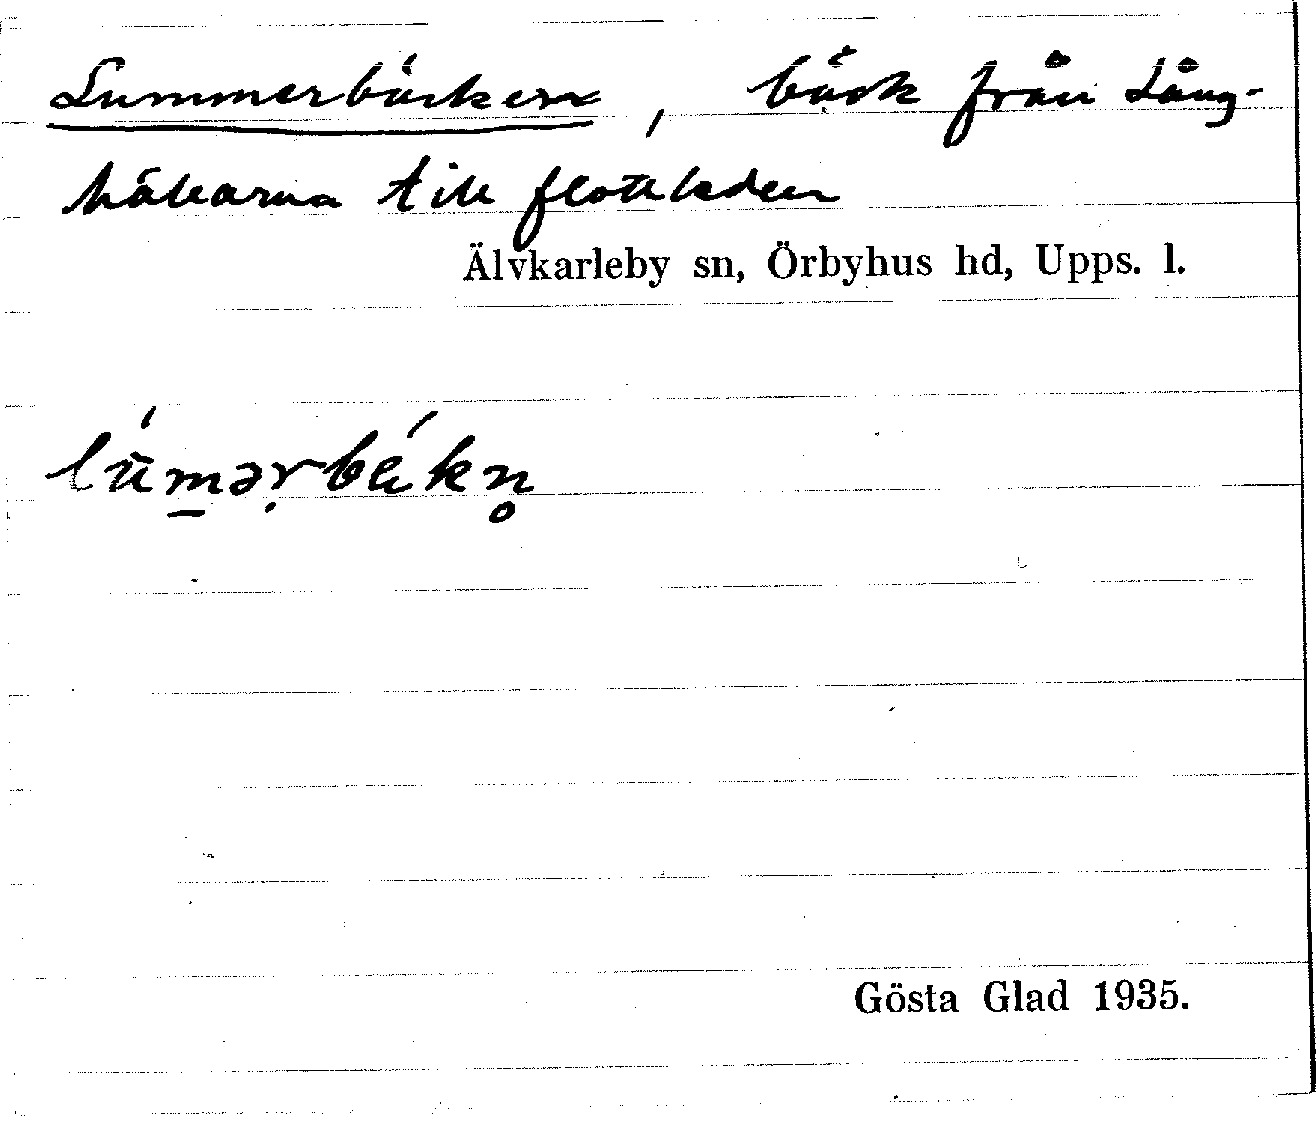 Lummerbäcken, bäck från Lång-
hälearna till flottleden
Älvkarleby sn, Örbyhus hd, Upps. l.
lúmərbä́kn̥
Gösta Glad 1935.